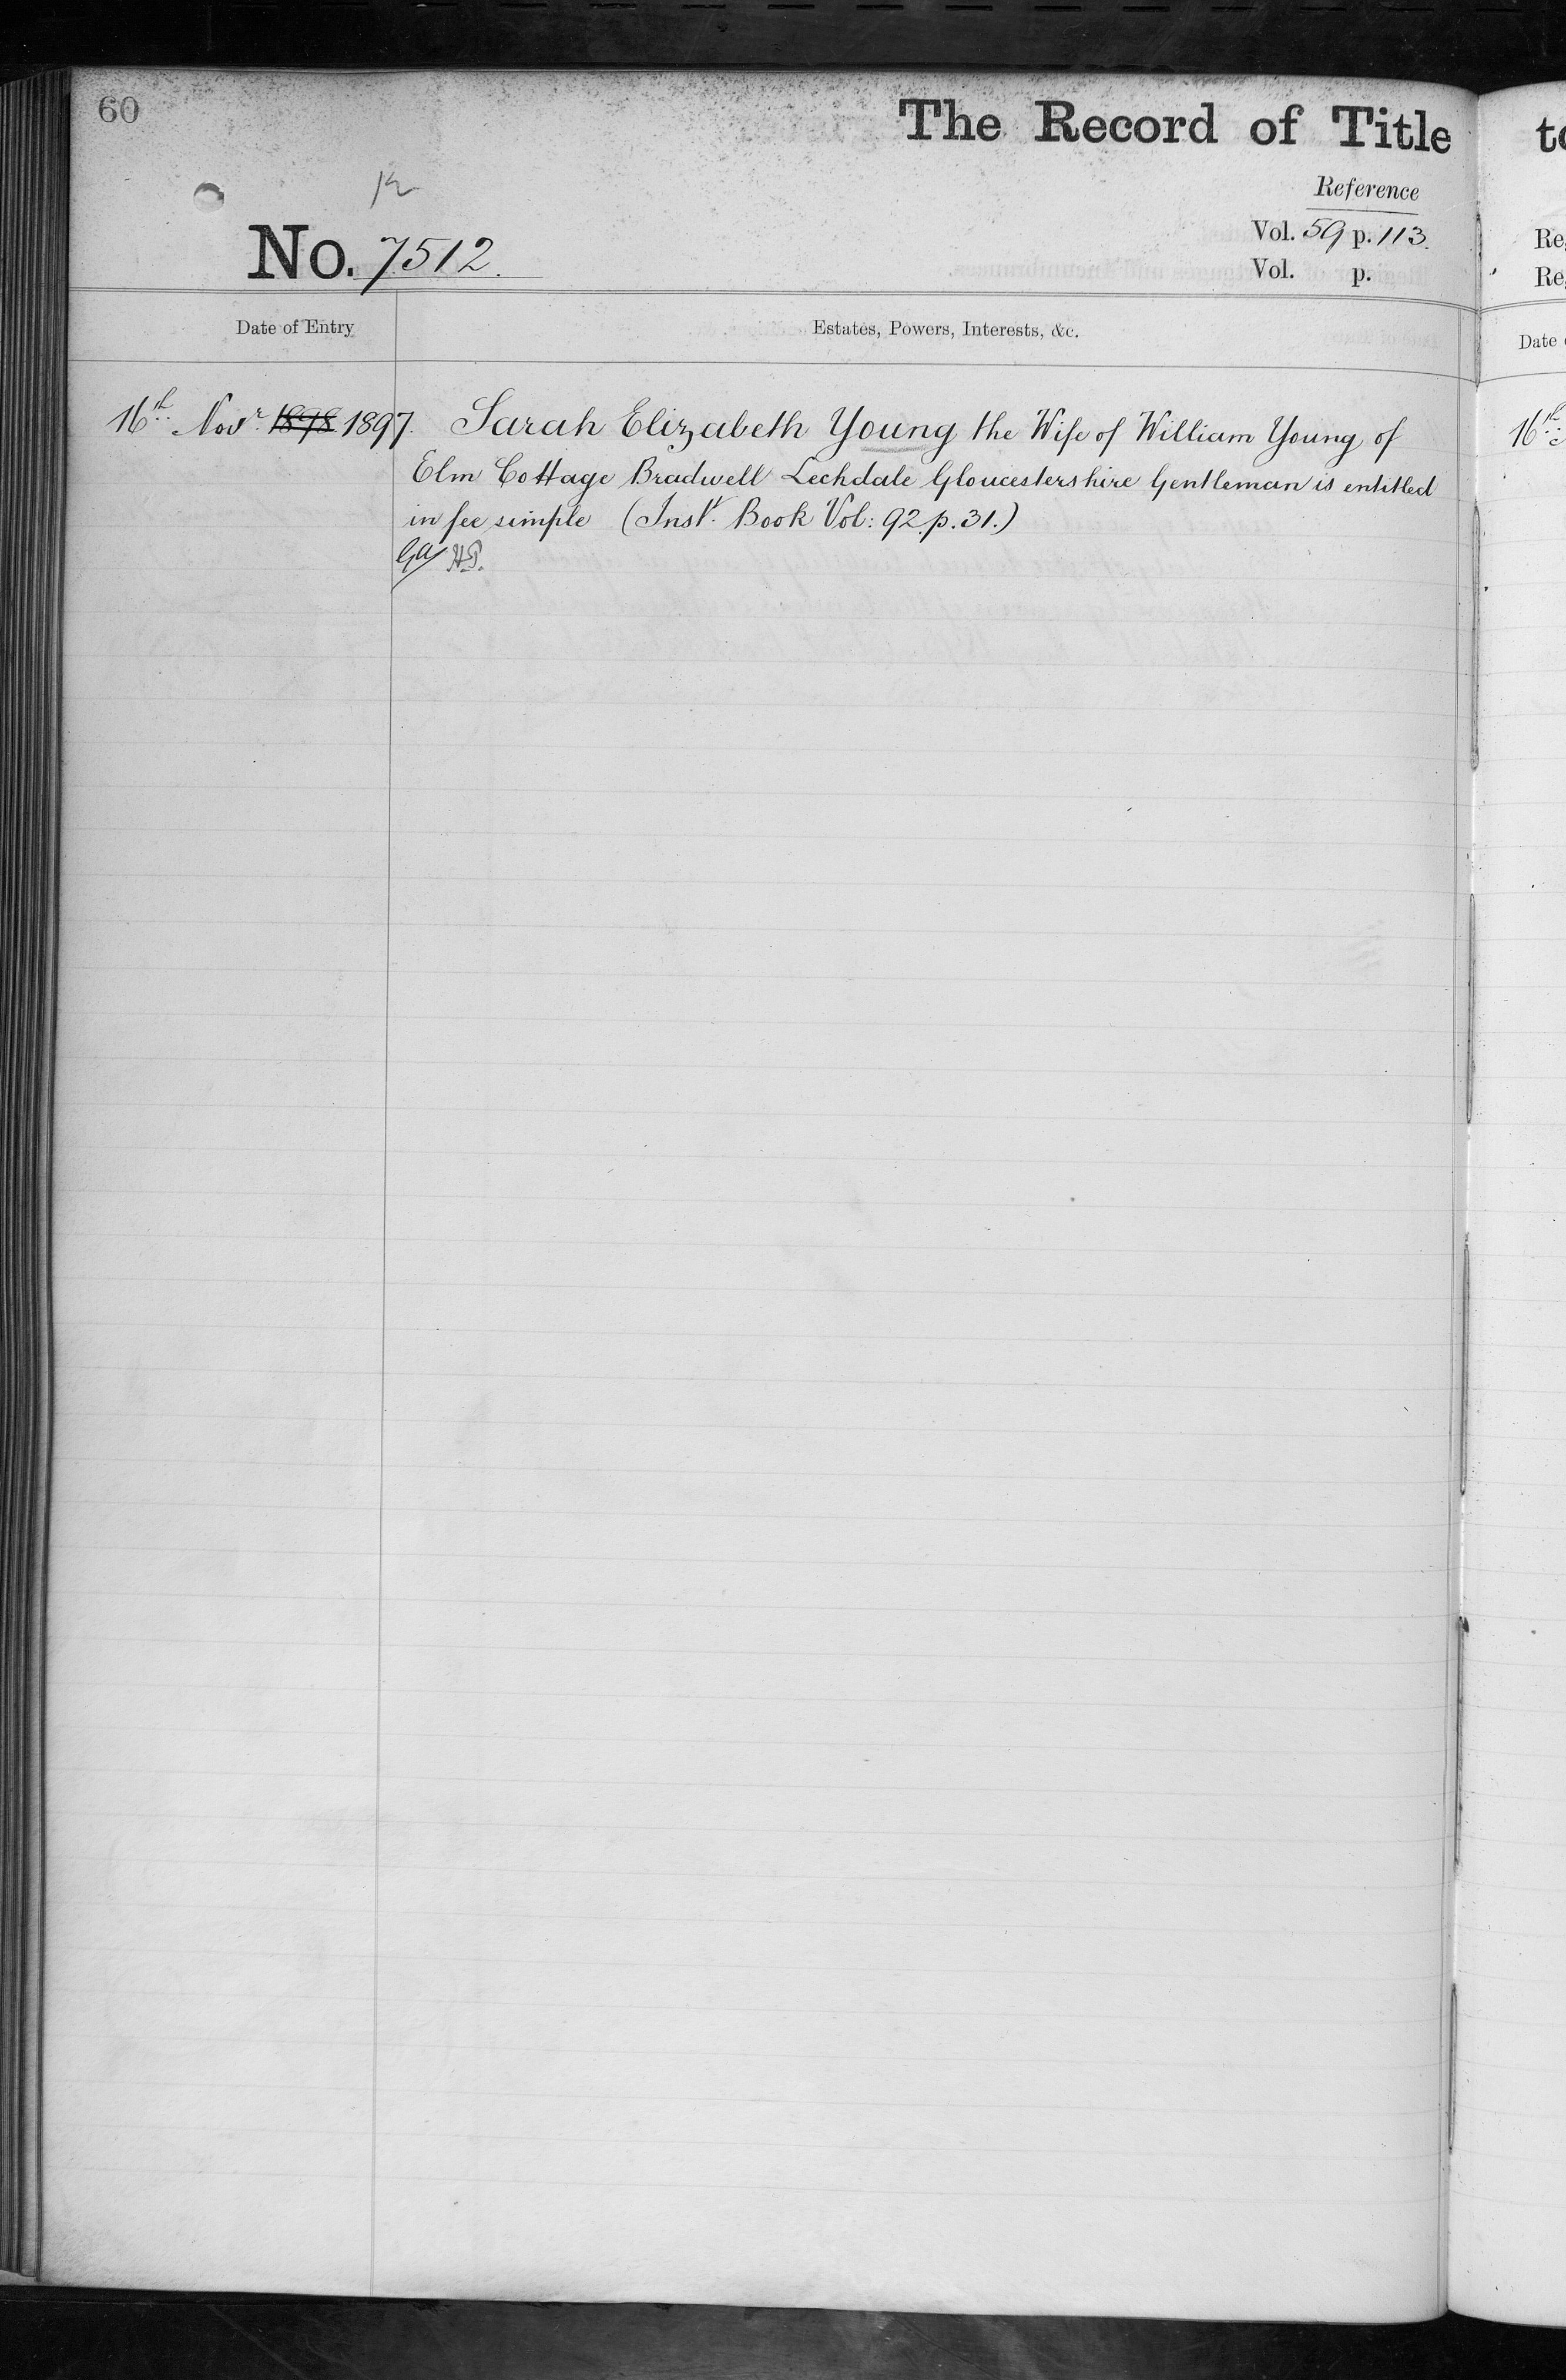 60
The Record of Title
Reference
No. 7512.
Vol. 59 p. 113.
Vol. p.
Date of Entry
Estates, Powers, Interests, &c.
16th Novr. 1898 1897. Sarah Elizabeth Young the Wife of William Young of
Elm Cottage Bradwell Lechdale Gloucestershire Gentleman is entitled
in fee simple (Inst. Book Vol: 92. p. 31.)
Re
Re
Date
16th